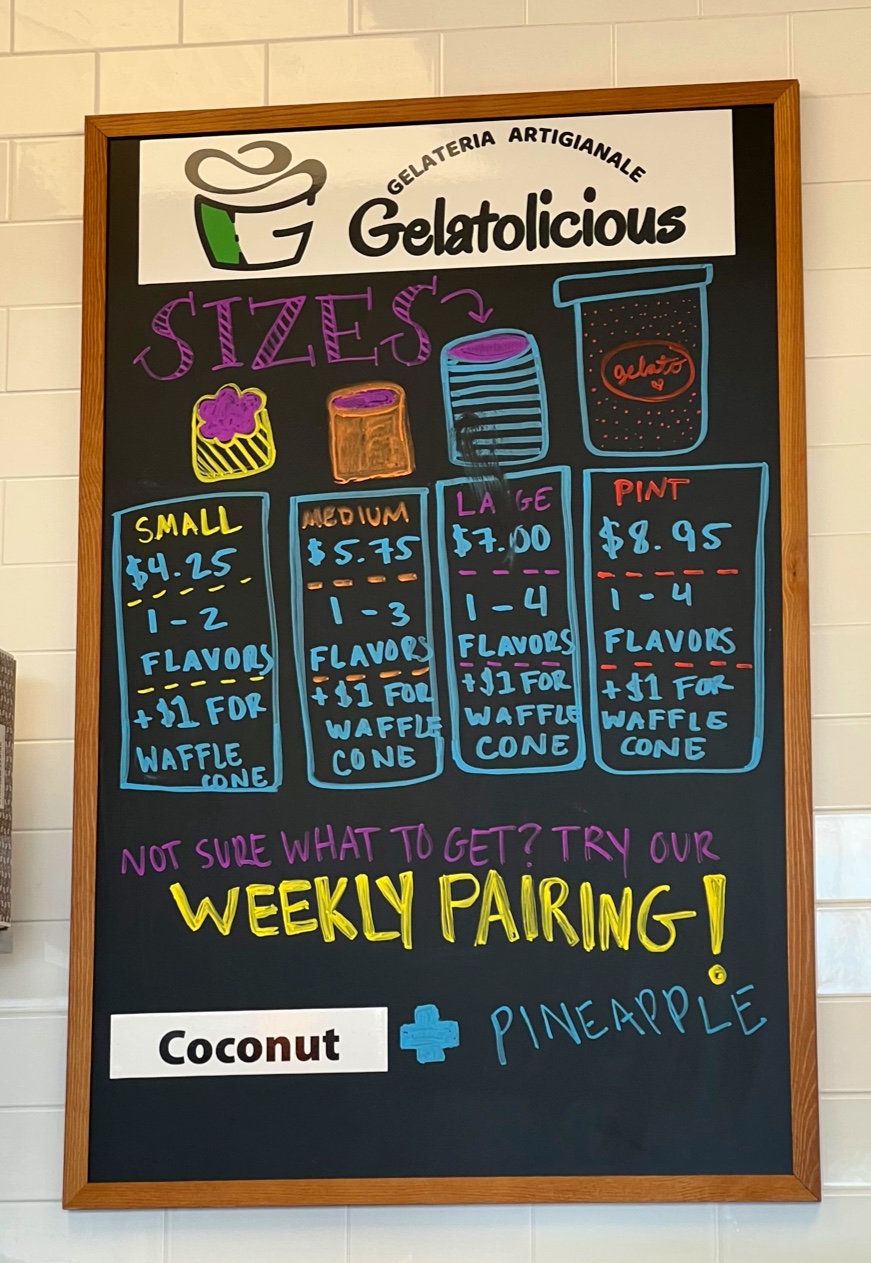 GELATERIA ARTIGIANALE
Gelatolicious
SIZES
gelato
SMALL
$4.25
1-2
FLAVORS
+$1 FOR
WAFFLE
CONE
MEDIUM
$5.75
1-3
FLAVORS
+$1 FOR
WAFFLE
CONE
LA GE
$7.00
1-4
FLAVORS
+$1 FOR
WAFFLE
CONE
PINT
$8.95
1-4
FLAVORS
+$1 FOR
WAFFLE
CONE
NOT SURE WHAT TO GET? TRY OUR
WEEKLY PAIRING!
Coconut + PINEAPPLE